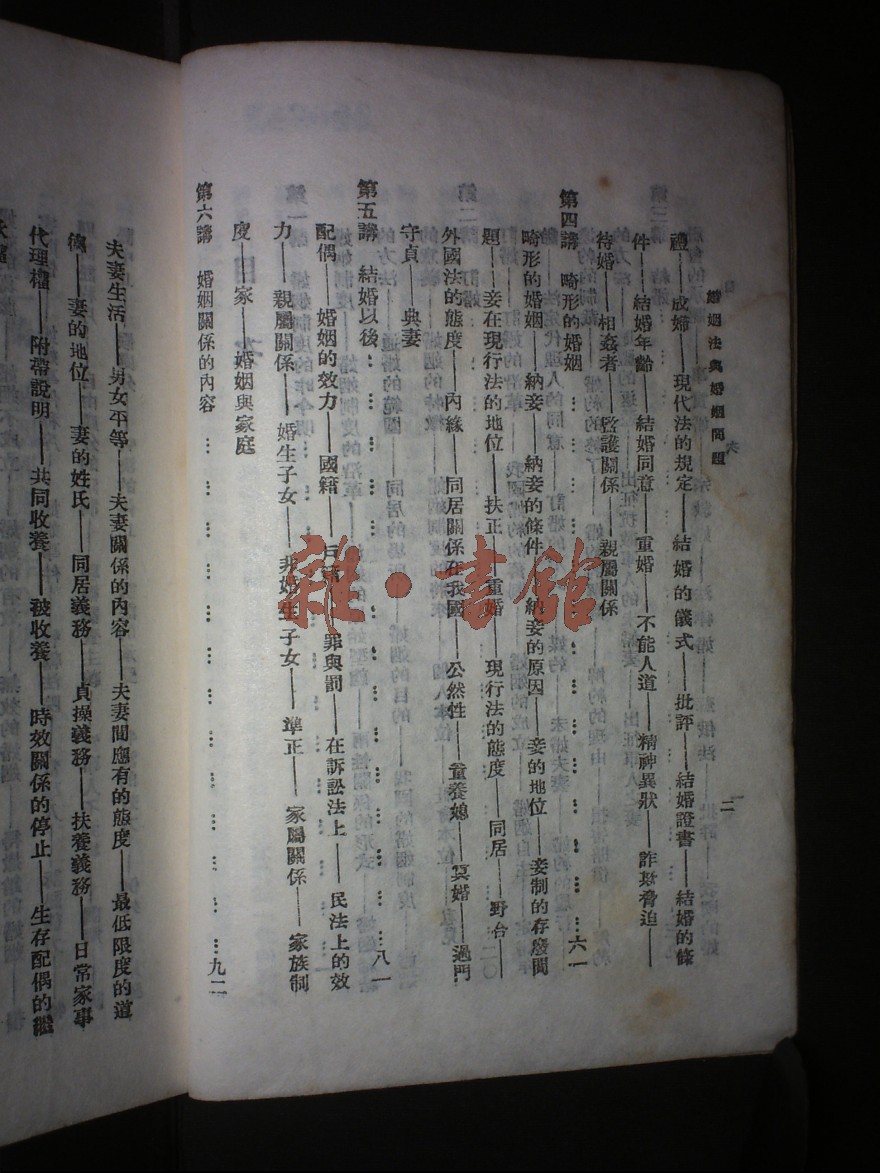 婚姻法與婚姻問題
二
禮——成婦——現代法的規定——結婚的儀式——批評——結婚證書——結婚的條
件——結婚年齡——結婚同意——重婚——不能人道——精神異狀——詐欺脅迫——
待婚——相姦者——監護關係——親屬關係
第四講 畸形的婚姻 … … … … … … … … …六一
畸形的婚姻——納妾——納妾的條件——納妾的原因——妾的地位——妾制的存廢問
題——妾在現行法的地位——扶正——重婚——現行法的態度——同居——野合——
外國法的態度——內緣——同居關係在我國——公然性——童養媳——冥婚——過門
守貞——典妻
第五講 結婚以後 … … … … … … … … …八一
配偶——婚姻的效力——國籍——戶籍——罪與罰——在訴訟法上——民法上的效
力——親屬關係——婚生子女——非婚生子女——準正——家屬關係——家族制
度——家——婚姻與家庭
第六講 婚姻關係的內容 … … … … … … … …九二
夫妻生活——男女平等——夫妻關係的內容——夫妻間應有的態度——最低限度的道
德——妻的地位——妻的姓氏——同居義務——貞操義務——扶養義務——日常家事
代理權——附帶說明——共同收養——被收養——時效關係的停止——生存配偶的繼
雜·書館